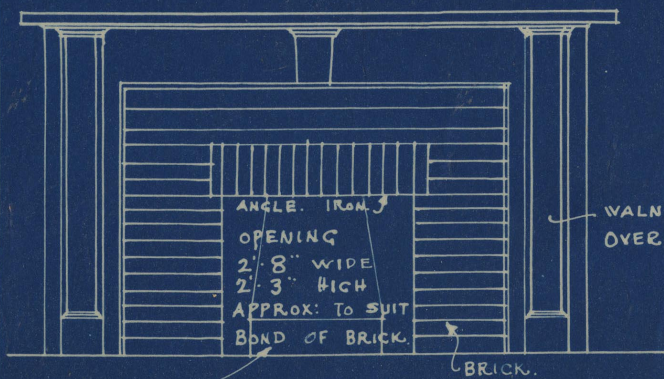 ANGLE. IRON
OPENING
2'-8" WIDE
2'-3" HIGH
APPROX: TO SUIT
BOND OF BRICK.
WALN
OVER
BRICK.